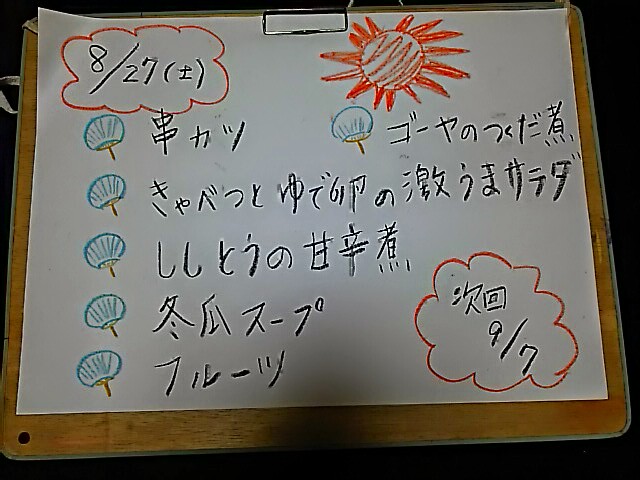 8/27(土)
串カツ
ゴーヤのつくだ煮
きゃべつとゆで卵の激うまサラダ
ししとうの甘辛煮
冬瓜スープ
フルーツ
次回
9/7